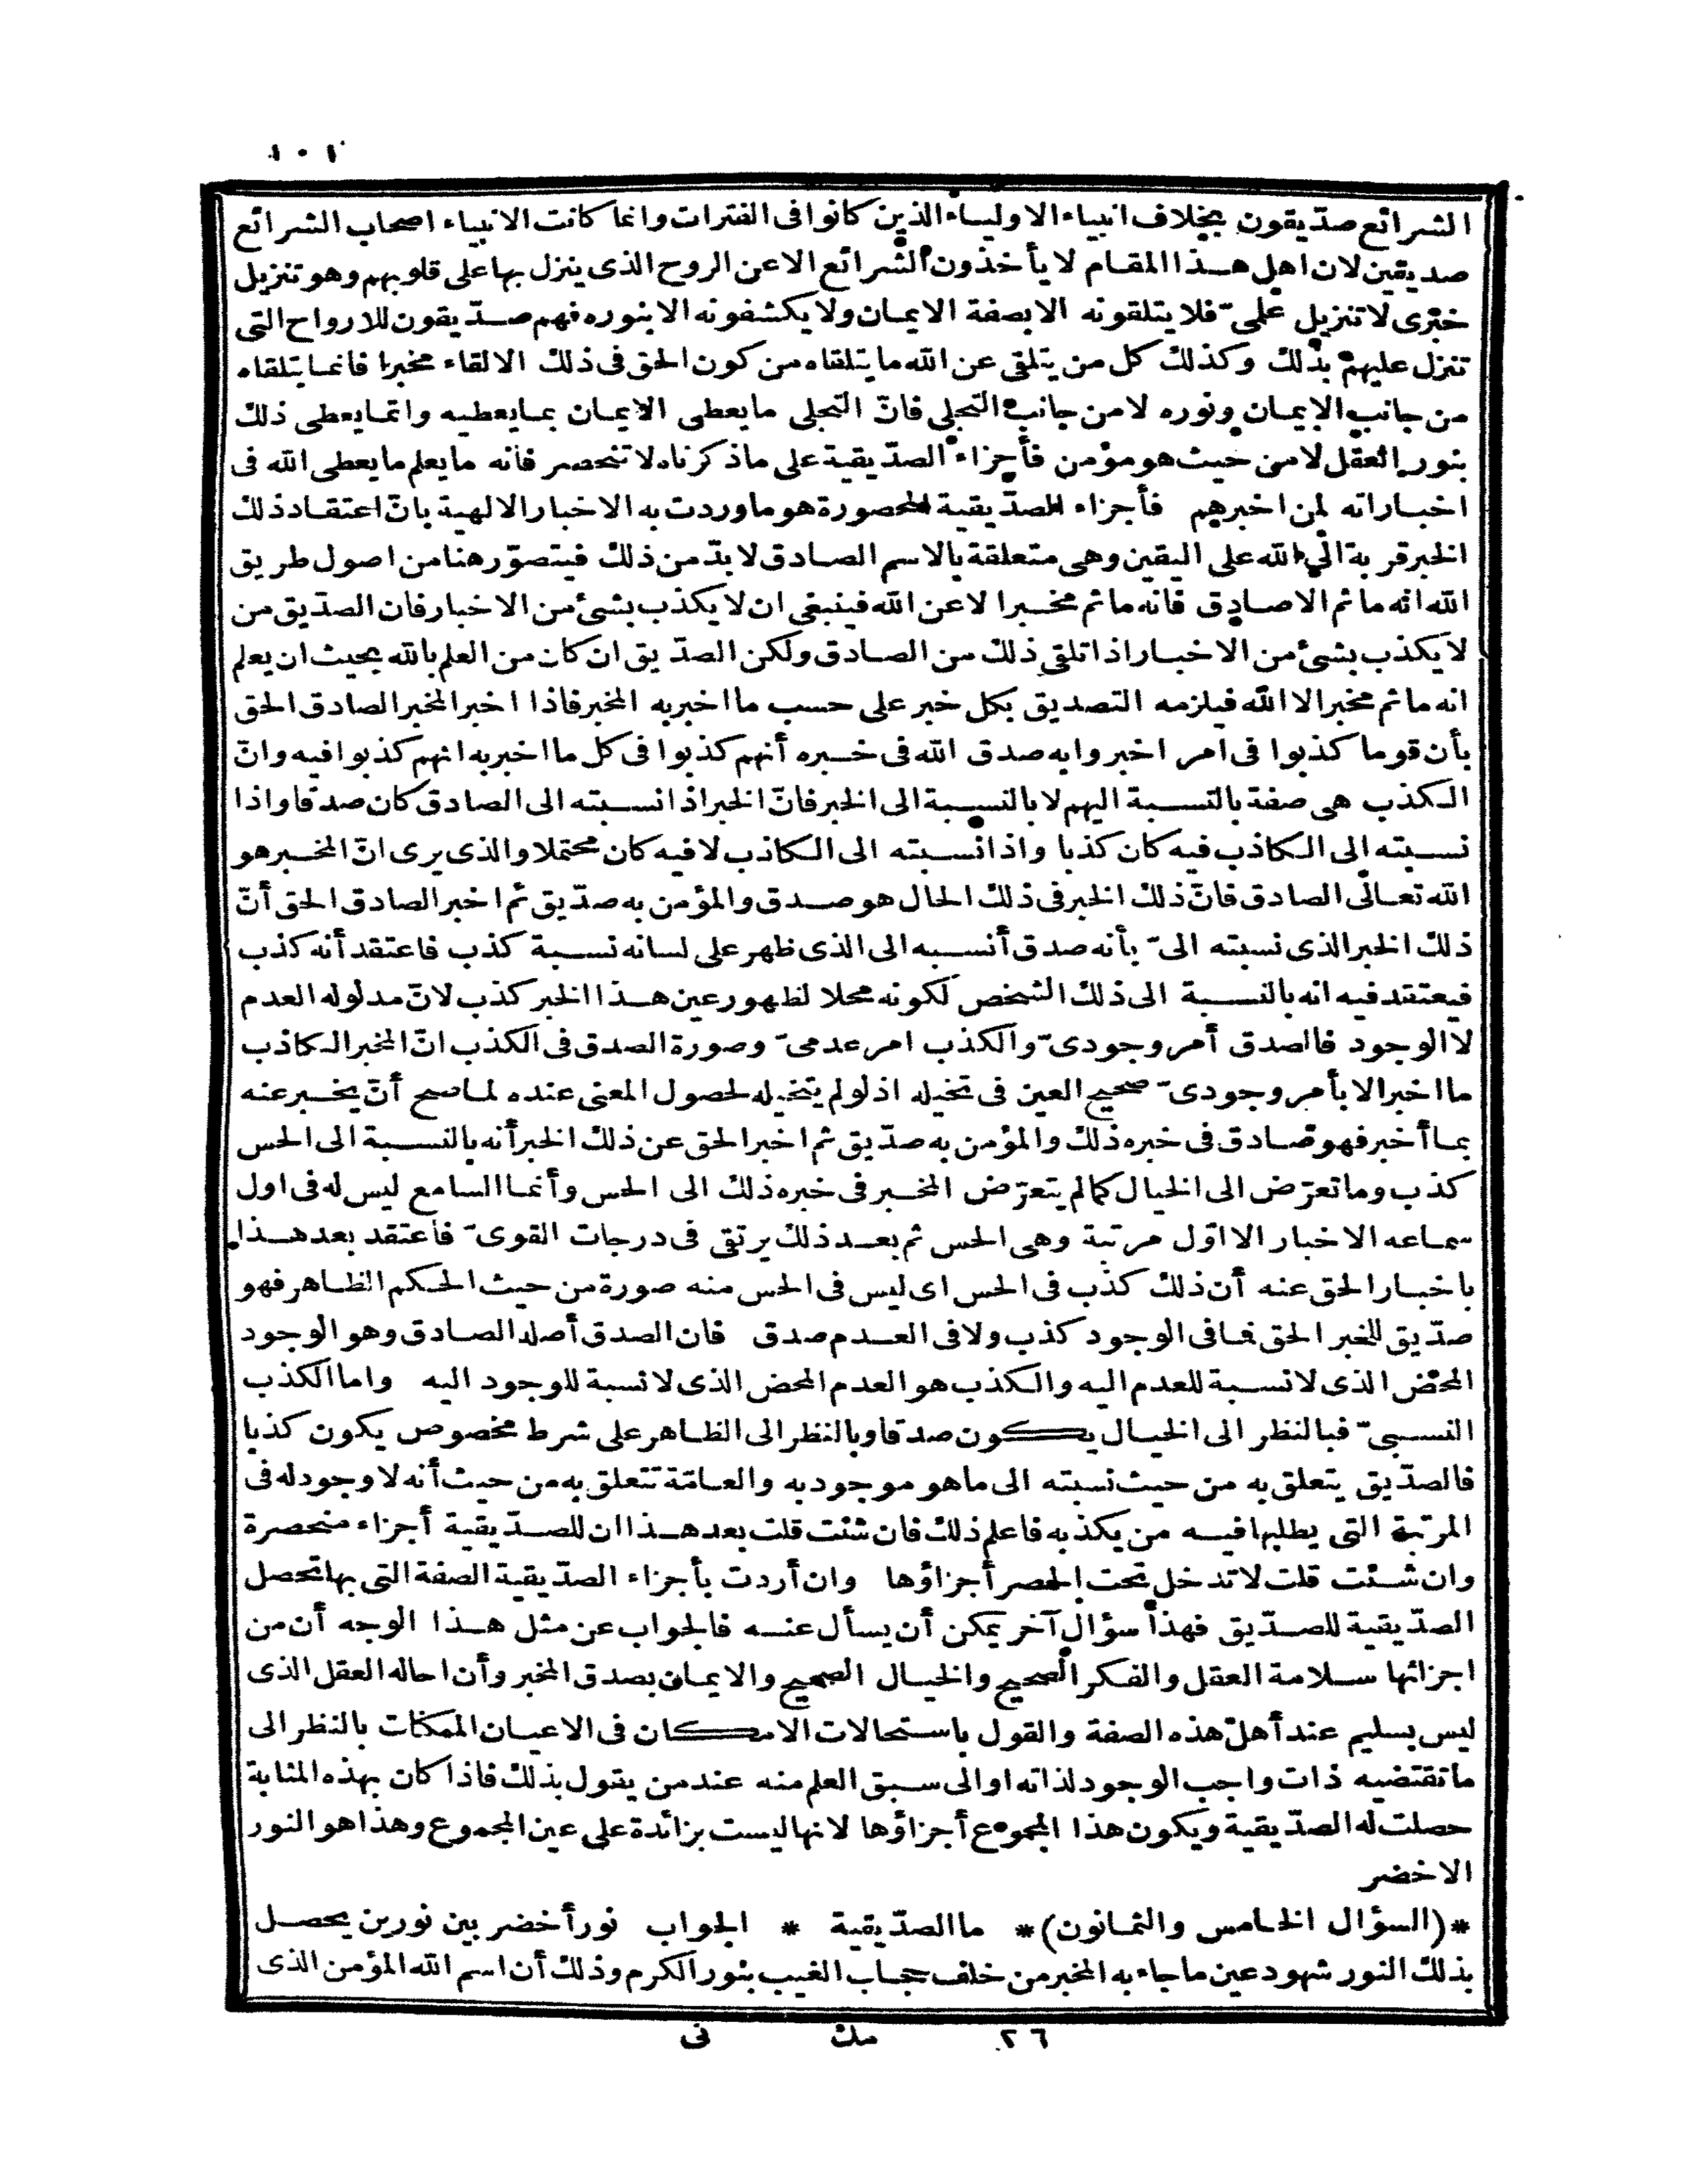 ١٠١
الشرائع صدّيقون بخلاف انبياء الاولياء الذين كانوا فى الفترات وانما كانت الانبياء اصحاب الشرائع
صديقين لان اهل هذا المقام لا يأخذون الشرائع الا عن الروح الذى ينزل بها على قلوبهم وهو تنزيل
خبرى لا تنزيل علمىّ فلا يتلقونه الا بصفة الايمان ولا يكشفونه الا بنوره فهم صدّيقون للارواح التى
تنزل عليهم بذلك وكذلك كل من يتلقى عن الله ما يتلقاه من كون الحق فى ذلك الالقاء مخبرا فانما يتلقاه
من جانب الايمان ونوره لا من جانب التجلى فانّ التجلى ما يعطى الايمان بما يعطيه وانما يعطى ذلك
بنور العقل لا من حيث هو مؤمن فأجزاء الصدّيقية على ما ذكرناه لا تنحصر فانه ما يعلم ما يعطى الله فى
اخباراته لمن اخبرهم فأجزاء الصدّيقية المحصورة هو ما وردت به الاخبار الالهية بانّ اعتقاد ذلك
الخبر قربة الى الله على اليقين وهى متعلقة بالاسم الصادق لا بدّ من ذلك فيتصوّر هنا من اصول طريق
الله انه ما ثم الا صادق فانه ما ثم مخبرا لا عن الله فينبغى ان لا يكذب بشئ من الاخبار فان الصدّيق من
لا يكذب بشئ من الاخبار اذا تلقى ذلك من الصادق ولكن الصدّيق ان كان من العلم بالله بحيث ان يعلم
انه ما ثم مخبر الا الله فيلزمه التصديق بكل خبر على حسب ما اخبر به المخبر فاذا اخبر المخبر الصادق الحق
بأن قوما كذبوا فى امر اخبروا به صدق الله فى خبره أنهم كذبوا فى كل ما اخبر به انهم كذبوا فيه وانّ
الكذب هى صفة بالنسبة اليهم لا بالنسبة الى الخبر فانّ الخبر اذا نسبته الى الصادق كان صدقا واذا
نسبته الى الكاذب فيه كان كذبا واذا نسبته الى الكاذب لا فيه كان محتملا والذى يرى انّ المخبر هو
الله تعالى الصادق فانّ ذلك الخبر فى ذلك الحال هو صدق والمؤمن به صدّيق ثم اخبر الصادق الحق أنّ
ذلك الخبر الذى نسبته الىّ بأنه صدق أنسبه الى الذى ظهر على لسانه نسبة كذب فاعتقد أنه كذب
فيعتقد فيه انه بالنسبة الى ذلك الشخص لكونه محلا لظهور عين هذا الخبر كذب لانّ مدلوله العدم
لا الوجود فالصدق أمر وجودىّ والكذب امر عدمىّ وصورة الصدق فى الكذب انّ المخبر الكاذب
ما اخبر الا بأمر وجودىّ صحيح العين فى تخيله اذ لو لم يتخيله لحصول المعنى عنده لما صح أنّ يخبر عنه
بما أخبر فهو صادق فى خبره ذلك والمؤمن به صدّيق ثم اخبر الحق عن ذلك الخبر أنه بالنسبة الى الحس
كذب وما تعرّض الى الخيال كما لم يتعرّض المخبر فى خبره ذلك الى الحس وأنما السامع ليس له فى اول
سماعه الاخبار الا اوّل مرتبة وهى الحس ثم بعد ذلك يرتقى فى درجات القوىّ فاعتقد بعد هذا
باخبار الحق عنه أن ذلك كذب فى الحس اى ليس فى الحس منه صورة من حيث الحكم الظاهر فهو
صدّيق للخبر الحق فما فى الوجود كذب ولا فى العدم صدق فان الصدق أصله الصادق وهو الوجود
المحض الذى لا نسبة للعدم اليه والكذب هو العدم المحض الذى لا نسبة للوجود اليه واما الكذب
النسبىّ فبالنظر الى الخيال يكون صدقا وبالنظر الى الظاهر على شرط مخصوص يكون كذبا
فالصدّيق يتعلق به من حيث نسبته الى ما هو موجود به والعامّة تتعلق به من حيث أنه لا وجود له فى
المرتبة التى يطلبها فيه من يكذب به فاعلم ذلك فان شئت قلت بعد هذا ان للصدّيقية أجزاء منحصرة
وان شئت قلت لا تدخل تحت الحصر أجزاؤها وان أردت بأجزاء الصدّيقية الصفة التى بها تحصل
الصدّيقية للصدّيق فهذا سؤال آخر يمكن أن يسأل عنه فالجواب عن مثل هذا الوجه أن من
اجزائها سلامة العقل والفكر الصحيح والخيال الصحيح والايمان بصدق المخبر وأن احاله العقل الذى
ليس بسليم عند أهل هذه الصفة والقول باستحالات الامكان فى الاعيان الممكنات بالنظر الى
ما تقتضيه ذات واجب الوجود لذاته او الى سبق العلم منه عند من يقول بذلك فاذا كان بهذه المثابة
حصلت له الصدّيقية ويكون هذا المجموع أجزاؤها لانها ليست بزائدة على عين المجموع وهذا هو النور
الاخضر
*(السؤال الخامس والثمانون)* ما الصدّيقية * الجواب نور أخضر بين نورين يحصل
بذلك النور شهود عين ما جاء به المخبر من خلف حجاب الغيب بنور الكرم وذلك أن اسم الله المؤمن الذى
٢٦ مك نى